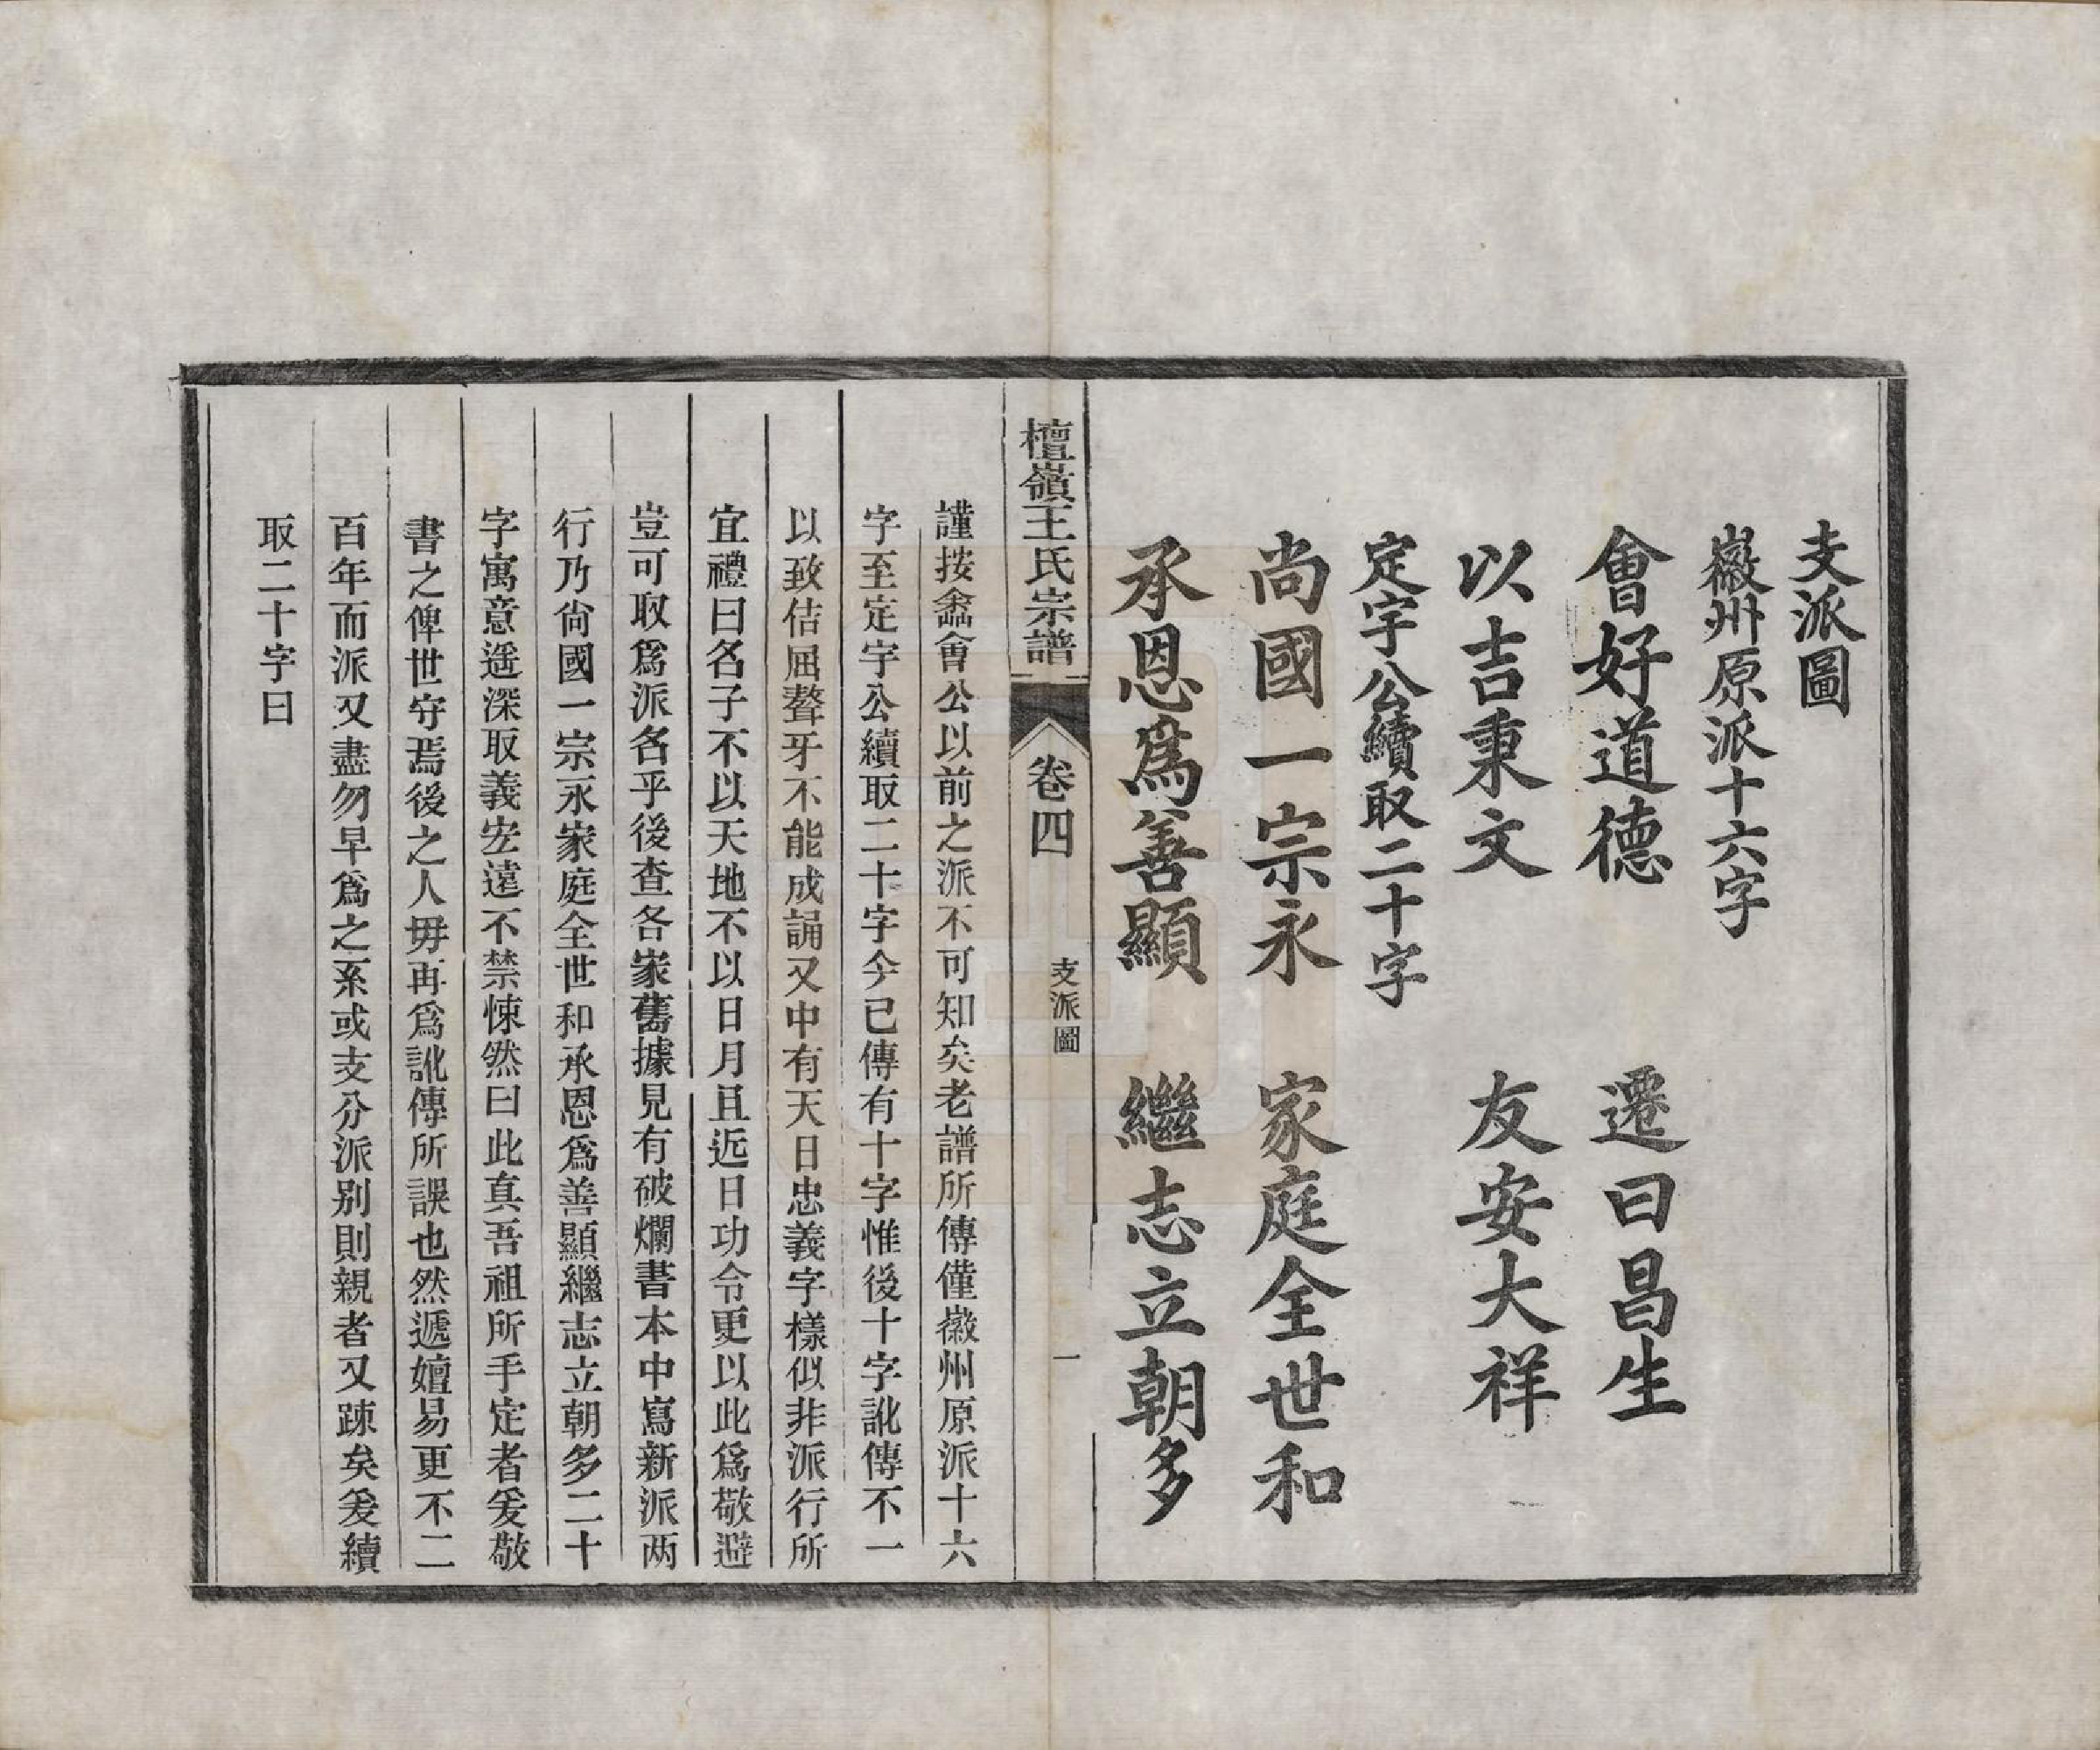 支派圖
徽州原派十六字
會好道德　遷曰昌生
以吉秉文　友安大祥
定宇公續取二十字
尚國一宗永　家庭全世和
承恩爲善顯　繼志立朝多
檀嶺王氏宗譜　卷四　支派圖　一
謹按鱻會公以前之派不可知矣老譜所傳僅徽州原派十六
字至定宇公續取二十字今已傳有十字惟後十字訛傳不一
以致佶屈聱牙不能成誦又中有天日忠義字樣似非派行所
宜禮曰名子不以天地不以日月且近日功令更以此爲敬避
豈可取爲派名乎後查各家舊據見有破爛書本中寫新派两
行乃尙國一宗永家庭全世和承恩爲善顯繼志立朝多二十
字寓意遥深取義宏遠不禁悚然曰此真吾祖所手定者爰敬
書之俾世守焉後之人毋再爲訛傳所誤也然遞嬗易更不二
百年而派又盡勿早爲之系或支分派别則親者又踈矣爰續
取二十字曰